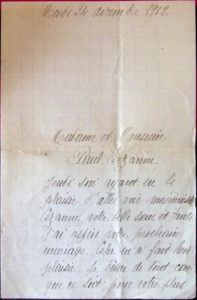 Mardi 24 décembre 1912.
Madame et Monsieur
Paul Cézanne.
ayant eu le
plaisir d'aller voir
Cézanne votre belle soeur et tante
J'ai appris votre prochain
mariage. Cela m'a fait
plaisir. Je désire de tout
que ce soit pour votre plus